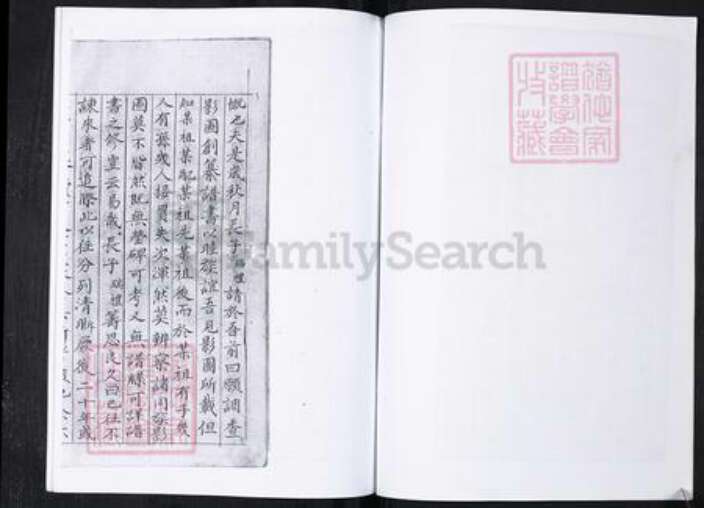 慨也夫是歲秋月長子 祖 請於吾前曰願調查
影圖創纂譜書以聯族誼吾見影圖所載但
知某祖某配某祖先某祖後而於某祖有子幾
人有孫幾人接買失次渾然莫辨察諸同宗影
圖莫不皆然既無塋碑可考又無譜牒可詳譜
書之修豈云易哉長子 祖 籌思良久曰已往不
諫來者可追際此以往分列清晰厥後二十年或
FamilySearch
譜學會
收藏